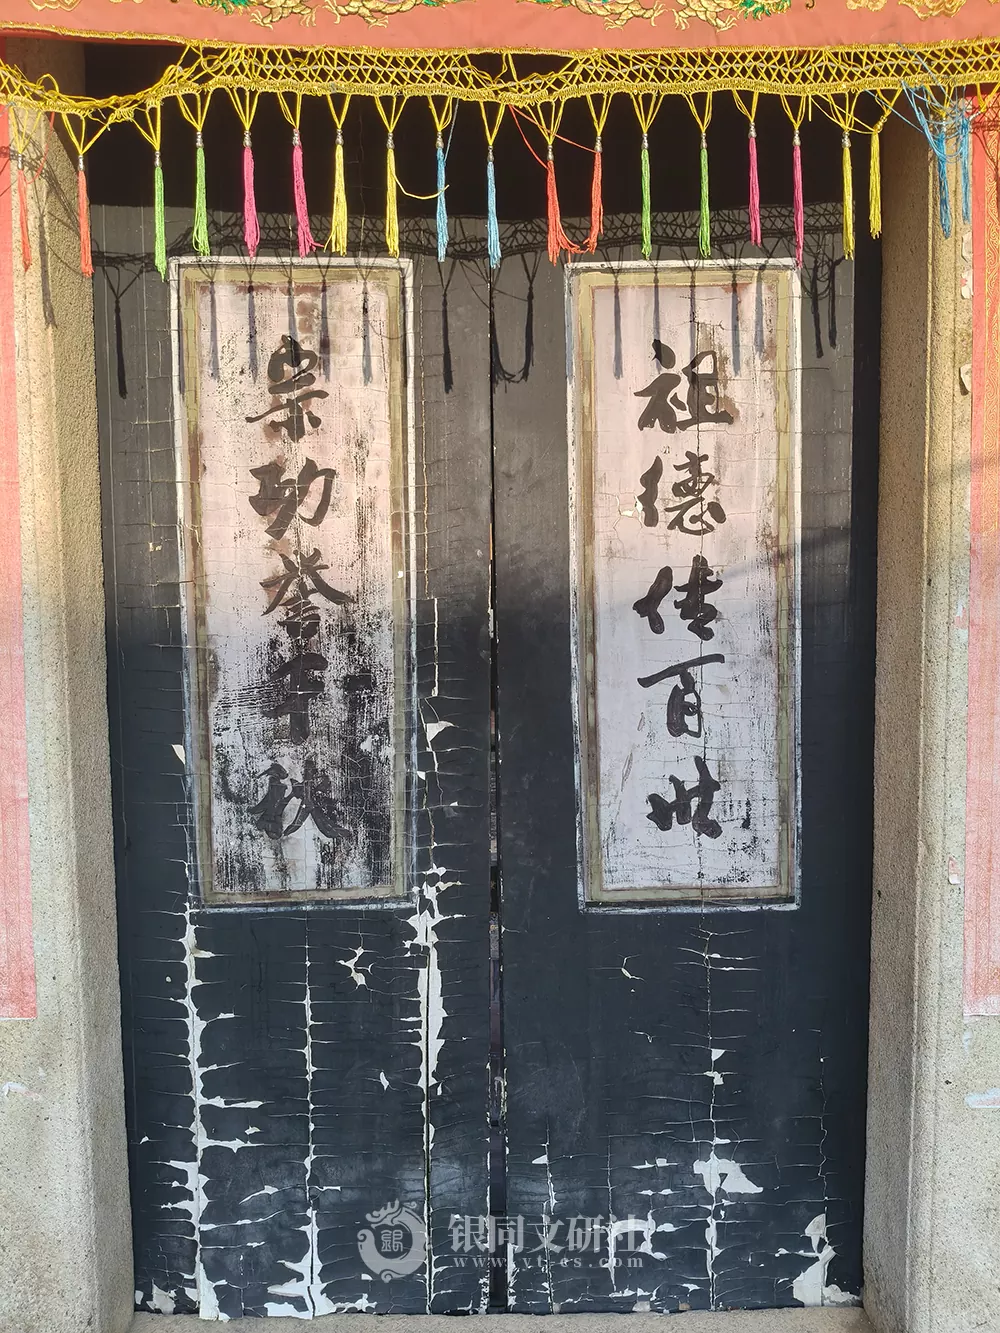 祖德传百世
宗功誉千秋
银同文研社
www.yt-cs.com